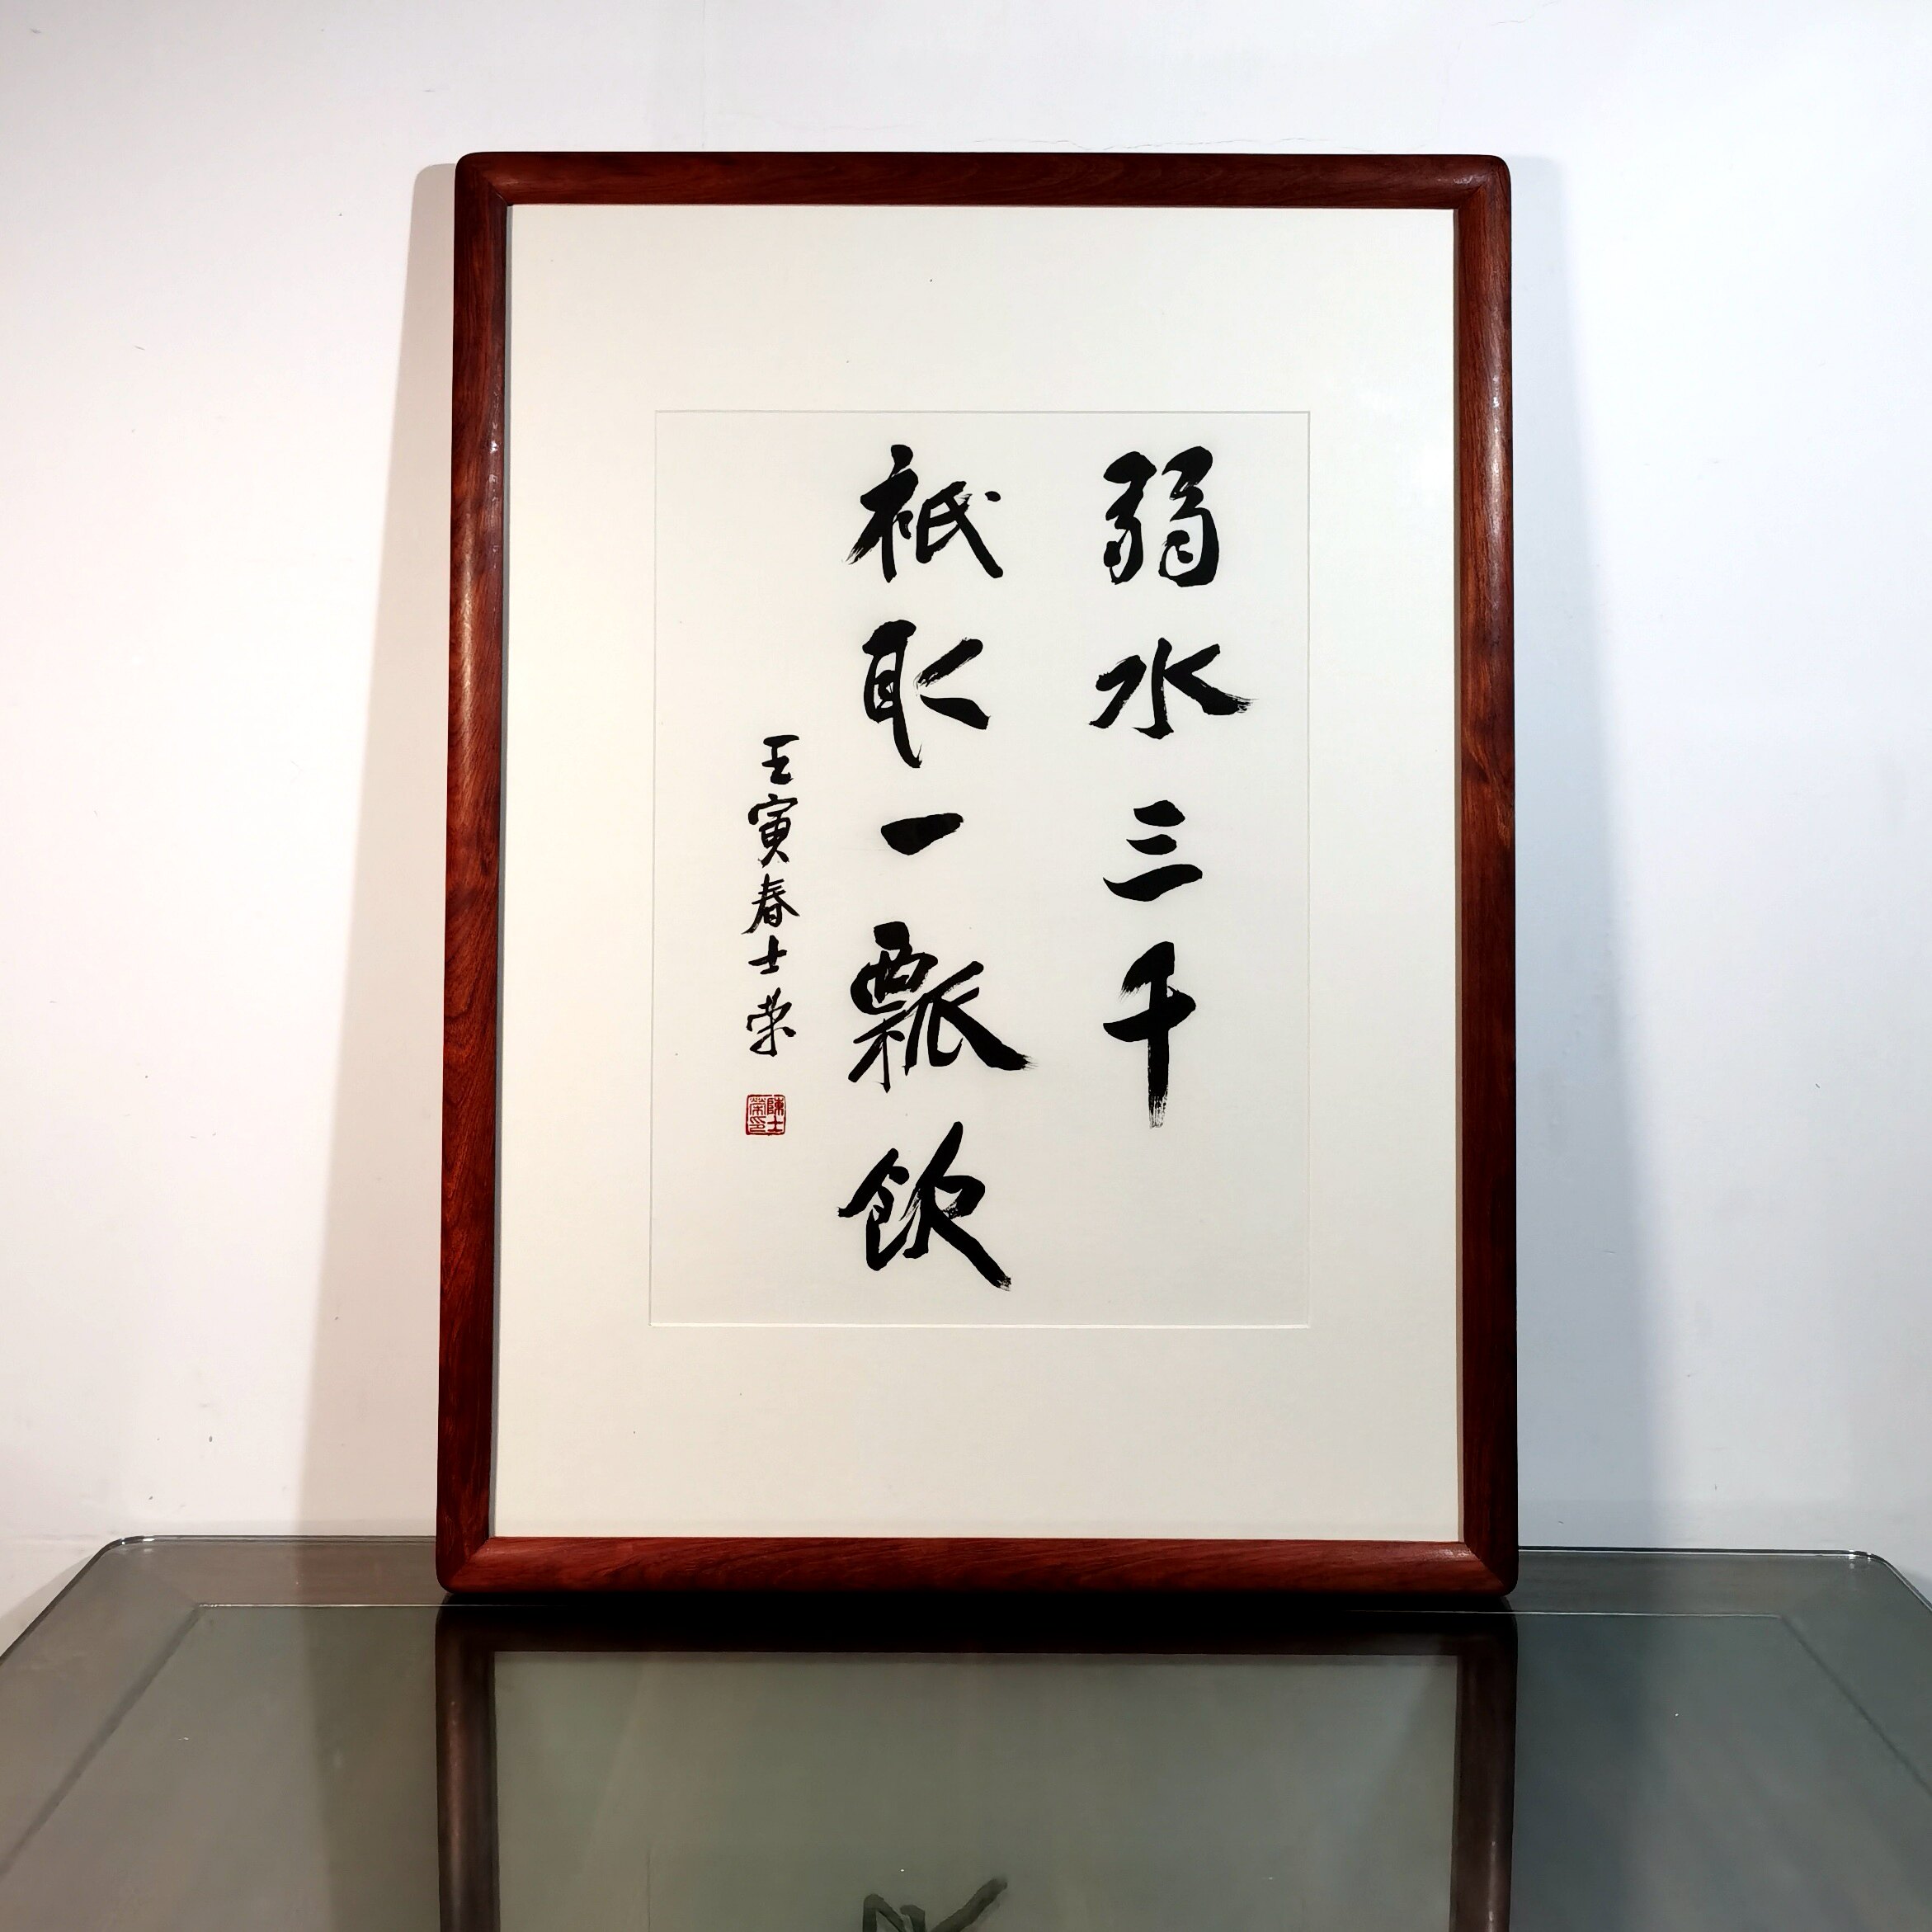 弱水三千
祇取一瓢飲
壬寅春士荣
陳士荣印